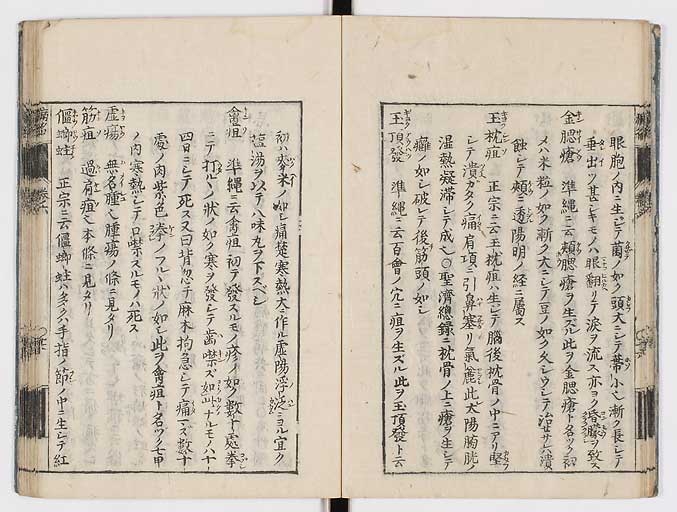 眼胞ノ内ニ生シテ菌ノ如ク頭大ニシテ蒂小ク漸ク長シテ
垂出ツ甚シキモノハ眼翻リテ涙ヲ流ス亦ヨク昏矇ヲ致ス
金腮瘡 準縄ニ云頬腮瘡ヲ生スル此ヲ金腮瘡ト名ック初
メハ米粒ノ如ク漸ク大ニシテ豆ノ如ク久シウシテ治セサレハ潰
蝕シテ頬ニ透ル陽明ノ経ニ属ス
玉枕疽 正宗ニ云玉枕疽ハ生シテ腦後枕骨ノ中ニアリ堅
シテ潰カタク痛肩項ニ引鼻塞リ氣麁此太陽膀胱ノ
湿熱凝滞シテ成ル○聖済總録ニ枕骨ノ上ニ瘡ヲ生シテ
癰ノ如シ破レテ後筋頭ノ如シ
玉頂發 準縄ニ云百會ノ穴ニ疽ヲ生スル此ヲ玉頂發ト云
初ハ麥米ノ如シ痛楚寒熱大ニ作ル虚陽浮泛ニヨル宜ク
塩湯ヲ以テ八味丸ヲ下スベシ
禽疽 準縄ニ云禽疽初テ發スルモノ疹ノ如ク數十處拳
ニテ打ツノ狀ノ如ク寒ヲ發シテ齒噤ス如此ナルモノハ十
四日ニシテ死ス又曰背忽チ麻木拘急シテ痛マス數十
處ノ肉紫色拳ノフルヽ狀ノ如シ此ヲ禽疽ト名ツク七甲
ノ内寒熱シテ口噤スルモノハ死ス
虚瘍 無名腫ヒ腫瘍ノ條ニ見タリ
筋疽 過脊疽ヒ本條ニ見タリ
傴螂蛀 正宗ニ云傴螂蛀ハ多ク手指ノ節ノ中ニ生シテ紅